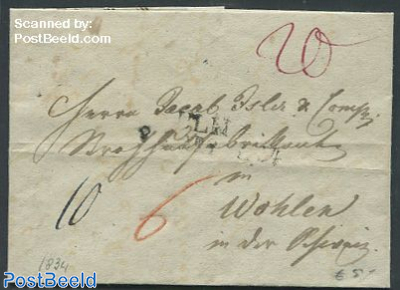 Scanned by
PostBeeld.com
20
Herrn Jacob Isler & Comp.
LN
in
10
6
Wohlen
in der Schweiz.
1834
€ 5.-
www.
PostBeeld
.com